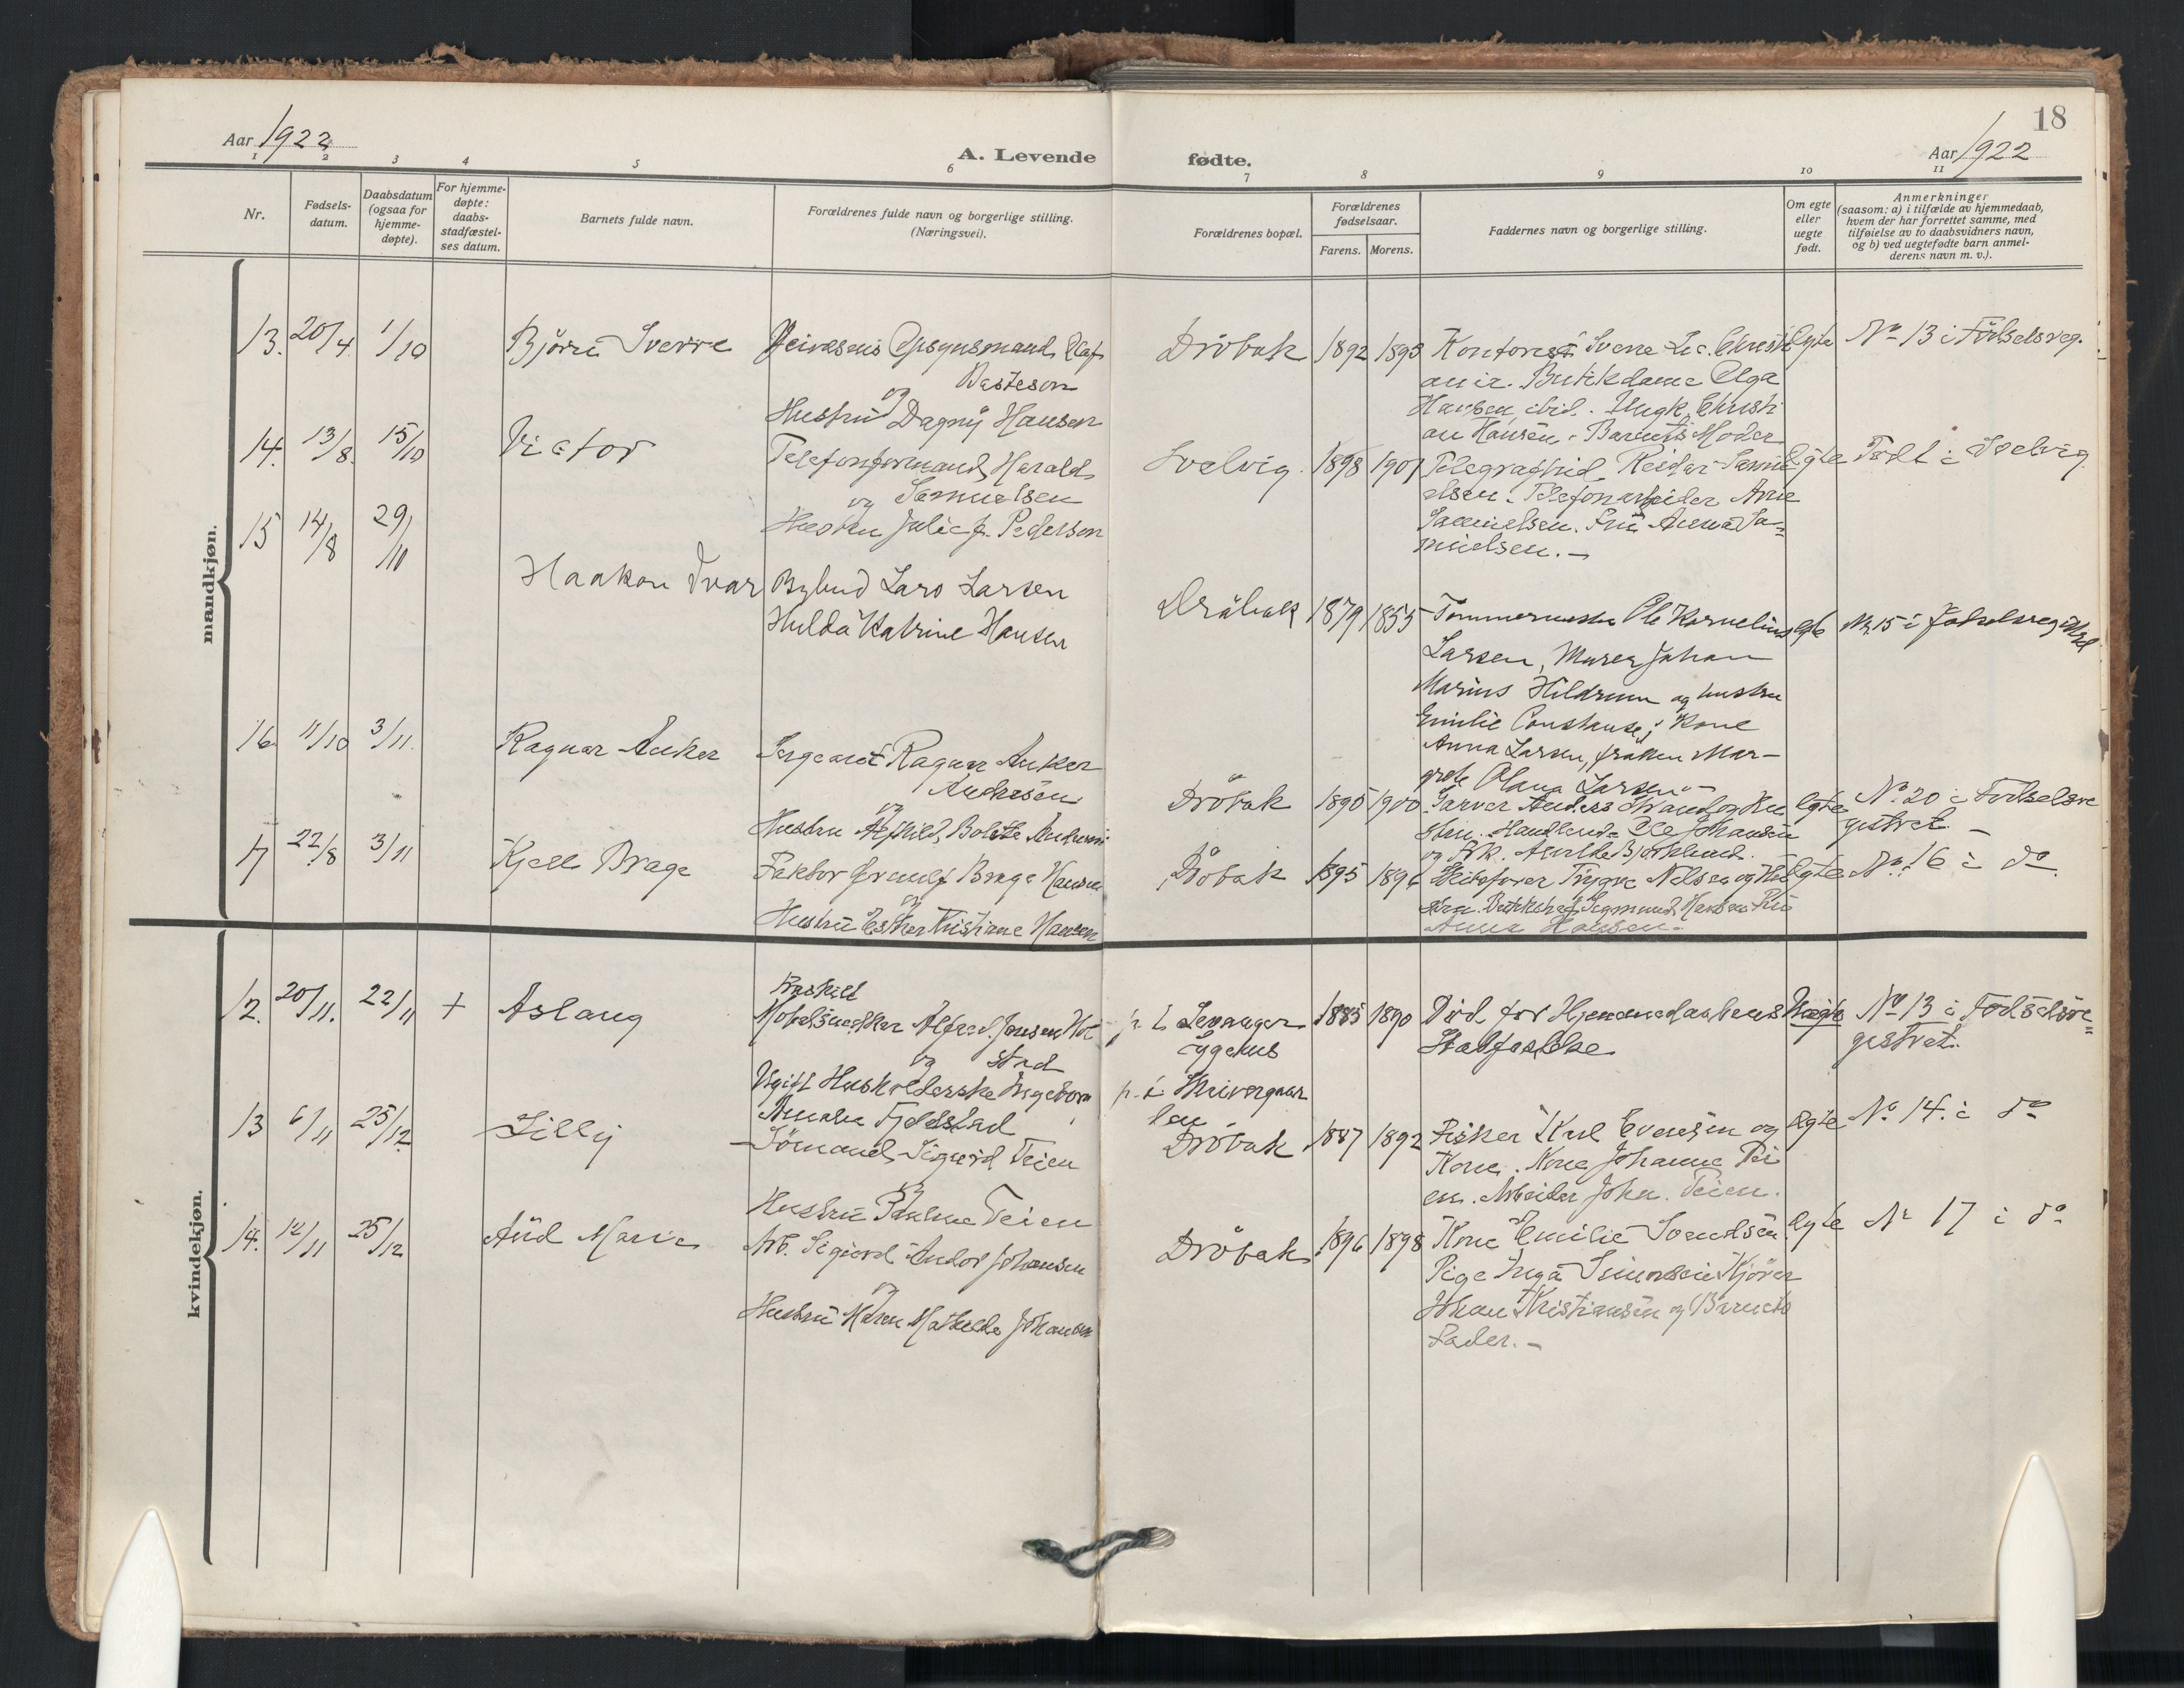 18
Aar 1922
A. Levende
fødte.
Aar 1922
1 2 3 4 5 6 7 8 9 10 11
Nr.
Fødsels-
datum.
Daabsdatum
(ogsaa for
hjemme-
døpte).
For hjemme-
døpte:
daabs-
stadfæstel-
ses datum.
Barnets fulde navn.
Forældrenes fulde navn og borgerlige stilling.
(Næringsvei).
Forældrenes bopæl.
Forældrenes
fødselsaar.
Farens. Morens.
Faddernes navn og borgerlige stilling.
Om egte
eller
uegte
født.
Anmerkninger
(saasom: a) i tilfælde av hjemmedaab,
hvem der har forrettet samme, med
tilføielse av to daabsvidners navn,
og b) ved uegtefødte barn anmel-
derens navn m. v.).
mandkjøn.
13. 20/4 1/10 Björn Sverre
Opsynsmand Olaf
Basteson
og
Hustru Dagny Hansen
Dröbak 1892 1893
Kontorist Sverre
Butikdame Olga
Hansen ibid. Ungk. Christi
an Hansen. Barnets Moder
Egte
No 13 i Födselsreg.
14. 13/8 15/10 Victor
Telefonformand Harald
og Samuelsen
Hustru Julie Pederson
Svelvig 1898 1901
Reidar Samu
elsen. Telefonarbeider Arne
Samuelsen. Fru Anna Sa=
muelsen. —
Egte
Födt i Svelvig
15 14/8 29/10
Haakon Ivar
Bybud Lars Larsen
Hulda Katrine Hansen
Dröbak 1879 1855
Tømmermester Ole Kornelius
Larsen, Murer Johan
Marius Hildrum og hustru
Emilie Constanse; Kone
Anna Larsen, frøken Mar-
grete Olava Larsen
egte
Nr. 15 i fødselsregistret
16 11/10 3/11. Ragnar Anker
Sergeant Ragnar Anker
Andresen
og
Hustru Bolette
Dröbak 1895 1900
Garver Anders Strand og Hu
stru. Handlende Ole Johansen
og Frk.
Egte
No. 20 i Födselsre
gistret. —
17 22/8 3/11 Kjell Brage
Faktor Brage Hansen
og
Hustru Esther Kristiane Hansen
Dröbak 1895 1896
Trygve Nilsen og Hu
stru. Sigmund Hansen Fru
Anna Hansen.
Egte
No. 16 i do
kvindekjøn.
12. 20/11. 22/11 + Aslaug
Fraskilt
Möbelsnedker Alfred Jensen
og
Ugift Husholderske Ingeborg
Amalie Fjeldstad
p. t. Levanger
Sygehus
p. t. Skrivergaar
den
1885 1890
Död før Hjemmedaabens
Stadfæstelse
Uegte
No 13 i Födselsre=
gistret.
13 6/11 25/12 Lilly
Sömand Sigurd Teien
og
Hustru Pauline Teien
Dröbak 1887 1892
Fisker Karl Evensen og
Kone. Kone Johanne Tei
en. Arbeider John. Teien.
Egte
No. 14. i do
14. 12/11 25/12 Aud Marie
Arb. Sigurd Andor Johansen
og
Hustru Maren Mathilde Johansen
Dröbak 1896 1898
Kone Emilie Svendsen
Pige Inga Simonsen Kjörer
Johan Kristiansen og Barnets
Fader. —
Egte
No 17 i do